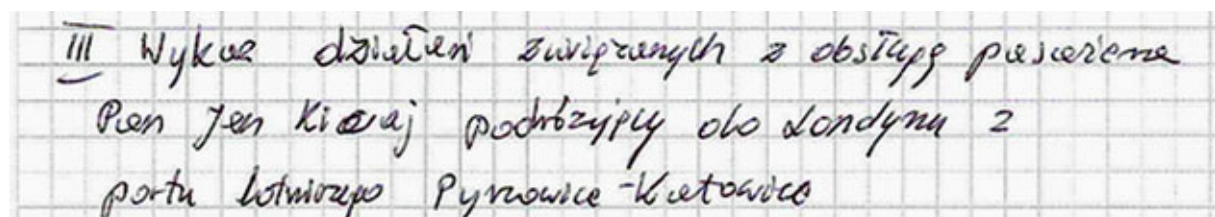 III Wykaz działań związanych z obsługą pasażera
Pan Jan Kiczaj podróżujący do Londynu z
portu lotniczego Pyrzowice-Katowice